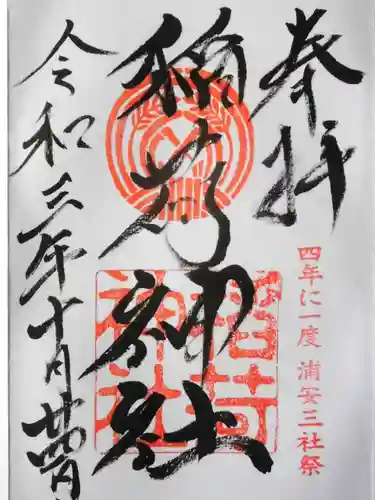 奉拝
四年に一度 浦安三社祭
稲荷神社
稲荷
神社
令和三年十月廿四日